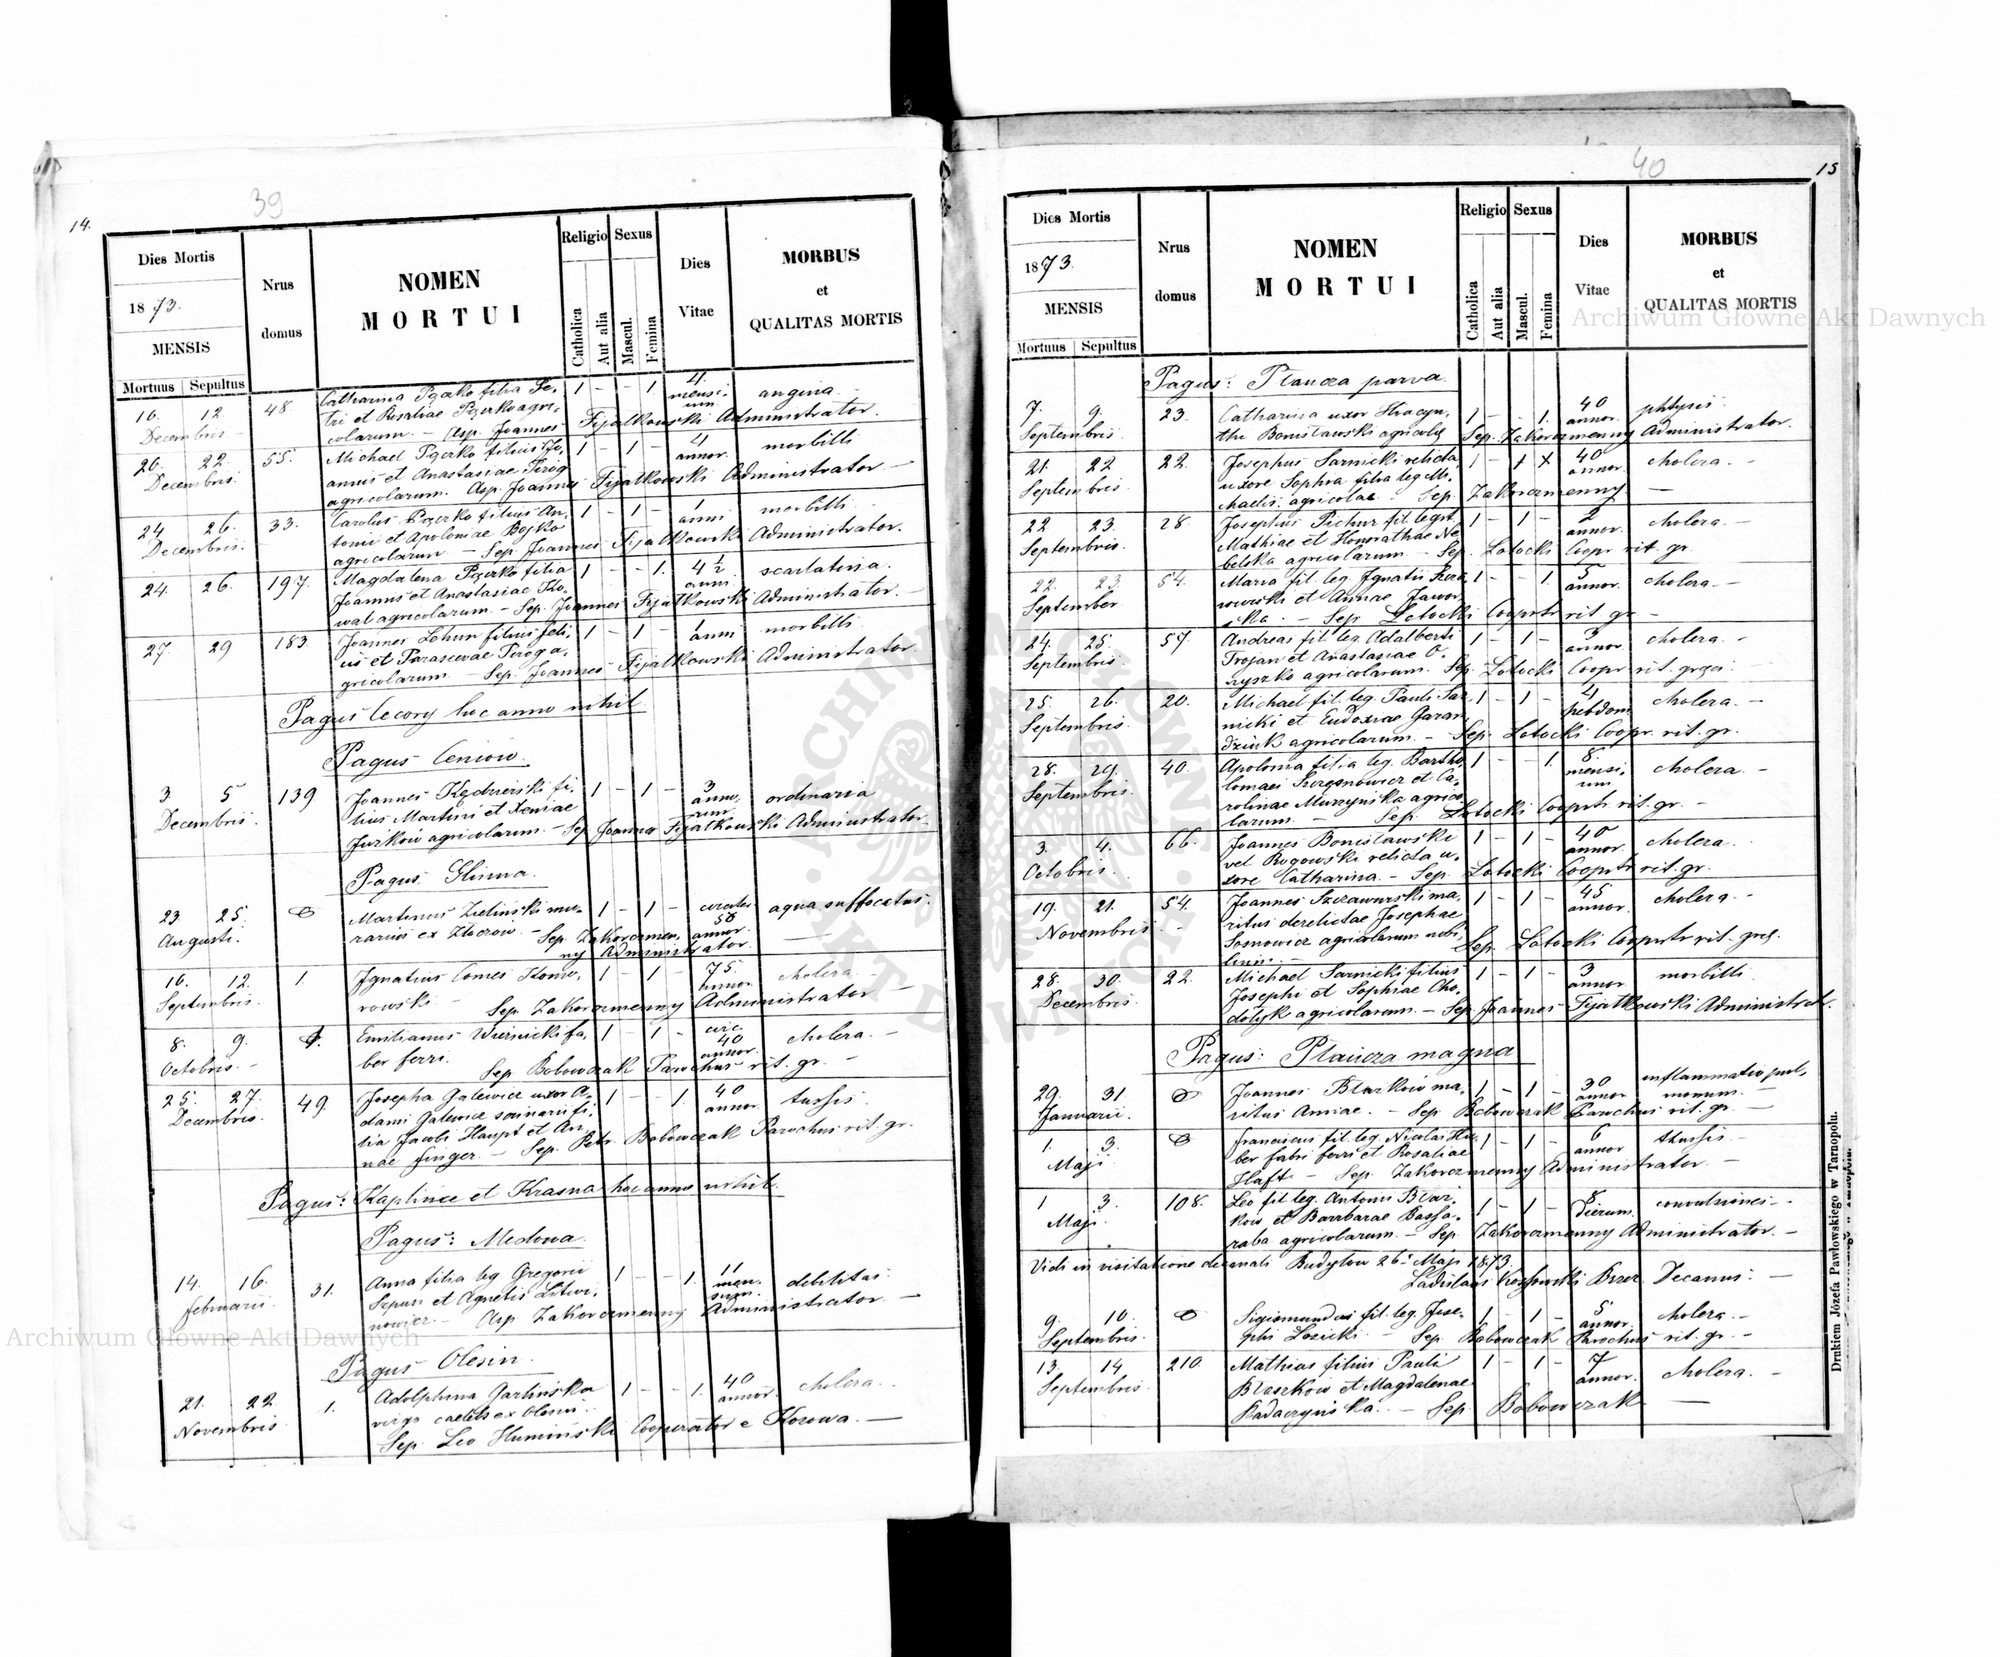 39
14.
Dies Mortis
1873.
MENSIS
Mortuus Sepultus
Nrus domus
NOMEN MORTUI
Religio Sexus
Catholica Aut alia Mascul. Femina
Dies Vitae
MORBUS et QUALITAS MORTIS
10. 12. 48 Catharina filia Pe- 1 - - 1 4 mensium angina.
Decembris tri et Rosaliae agri-
colarum. - Asp. Joannes Fijałkowski Administrator.
20. 22. 55. Michael filius Jo- 1 - 1 - 4 annor. morbilli
Decembris annis et Anastasiae
agricolarum. Asp. Joannes Fijałkowski Administrator -
24 26. 33. Carolus filius An- 1 - 1 - 1 anni morbilli
Decembris. tonii et Apoloniae Bojko
agricolarum - Sep. Joannes Fijałkowski Administrator.
24. 26. 197. Magdalena filia 1 - - 1. 4 1/2 anni scarlatina.
Joannis et Anastasiae Ko-
wal agricolarum. - Sep. Joannes Fijałkowski Administrator. -
27. 29 183. Joannes filius Feli- 1 - 1 - 1 anni morbilli
cis et Parascevae
gricolarum - Sep. Joannes Fijałkowski Administrator
Pagus Cecory hoc anno nihil.
Pagus Ceniow.
3 5 139 Joannes fi- 1 - 1 - 3 annorum ordinaria
Decembris. lius Martini et Xeniae
agricolarum. - Sep. Joannes Fijałkowski Administrator
Pagus Glinna.
23. 25. Martinus Zieliński mu- 1 - 1 - circiter 58 annor. aqua suffocatus.
Augusti. rarius ex Złoczow - Sep. Zakorczmen-
ny Administrator
10. 12. 1. Ignatius Comes Komo- 1 - 1 - 75. annor. cholera -
Septembris. rowski - Sep. Zakorczmenny Administrator -
8. 9. Emilianus fa- 1 - 1 - circ. 40 annor. cholera. -
Octobris. - ber ferri. Sep. Bobowczak Parochus rit. gr. -
25. 27. 49. Josepha Galewicz uxor A- 1 - - 1. 40 annor. tussis.
Decembris. dami Galewicz fi-
lia Jacobi Haupt et An-
nae Finger. - Sep. Petr. Bobowczak Parochus rit. gr.
Pagus: Kaplince et Krasna hoc anno nihil.
Pagus: Medowa.
14. 16. 31. Anna filia leg Gregorii 1 - - 1. 11 mensium. debilitas.
Februarii. et Agnetis Litwi-
nowicz. - Asp. Zakorczmenny Administrator -
Pagus Olesin.
21. 22. 1. Adolphina Garlińska 1 - - 1. 40 annor. cholera. -
Novembris virgo caelebs ex Olesin.
Sep. Leo Humiński Cooperator e Kozowa. -
40
15
Dies Mortis
1873.
MENSIS
Mortuus Sepultus
Nrus domus
NOMEN MORTUI
Religio Sexus
Catholica Aut alia Mascul. Femina
Dies Vitae
MORBUS et QUALITAS MORTIS
Pagus: Płaucza parva.
7. 9. 23. Catharina uxor Hyacyn- 1 - - 1. 40 annor. phtysis.
Septembris. thi Bonisławski agricolae Sep. Zakorczmenny Administrator.
21. 22 22. Josephus Sarnicki relicta 1 - 1 x 40 annor. cholera. -
Septembris. uxore Sophia filia leg Mi-
chaelis agricolae - Sep. Zakorczmenny. -
22 23. 28 Josephus Pichur fil. legit. 1 - 1 - 2 annor. cholera. -
Septembris. Mathiae et Honorathae Ne-
belska agricolarum - Sep. Łotocki Coopr. rit. gr.
22. 23. 54. Maria fil. leg. Ignatii 1 - - 1. 5 annor. cholera. -
September. et Annae Jawor-
ska. - Sep Łotocki Cooprtr rit. gr -
24. 25. 57. Andreas fil. leg. Adalberti 1 - 1 - 3 annor. cholera. -
Septembris. Trojan et Anastasiae O-
ryszko agricolarum. Sep. Łotocki Coopr rit. graeci.
25. 26. 20. Michael fil. leg. Pauli Sar- 1 - 1 - 4 hebdom. cholera. -
Septembris nicki et Eudoxiae Garan-
dziuk agricolarum. - Sep. Łotocki Coopr. rit. gr.
28. 29. 40. Apolonia filia leg. Bartho- 1 - - 1. 8 mensium cholera. -
Septembris. lomaei et Ca-
rolinae Muszyńska agrico-
larum. - Sep. Łotocki Cooprtr. rit. gr. -
3. 4. 66. Joannes Bonisławski 1 - 1 - 40 annor. cholera.
Octobris. vel Rogowski relicta u-
xore Catharina. - Sep. Łotocki Cooprtr rit. gr.
19. 21. 54. Joannes ma- 1 - 1 - 45 annor. cholera. -
Novembris. ritus derelictae Josephae
Sosnowicz agricolarum nobi-
lium. - Sep. Łotocki Cooprtr rit. graec.
28. 30. 22. Michael Sarnicki filius 1 - 1 - 3 annor morbilli
Decembris. Josephi et Sophiae Cho-
dolyk agricolarum. - Sep. Joannes Fijałkowski Administrat.
Pagus: Płaucza magna
29. 31. Joannes ma- 1 - 1 - 30 annor inflammatio pul-
Januarii. ritus Anniae. - Sep. Bobowczak Parochus rit. gr. - monum.
1. 3. Franciscus fil. leg. Nicolai Hu- 1 - 1 - 6 annor tussis. -
Maji. ber fabri ferri et Rosaliae
Haft - Sep. Zakorczmenny Administrator. -
1 3. 108. Leo fil leg. Antonii 1 - 1 - 8 dierum. convulsiones -
Maji. et Barbarae Bassa-
raba agricolarum. - Sep. Zakorczmenny Administrator. -
Vidi in visitatione decanali Budyłow 26. Maji 1873.
Ladislaus Decanus. -
9. 10. Sigismundus fil. leg. Jose- 1 - 1 - 5 annor. cholera. -
Septembris. phi Łozicki - Sep. Bobowczak Parochus rit. gr. -
13. 14 210. Mathias filius Pauli 1 - 1 - 7 annor. cholera. -
Septembris. Błaszków et Magdalenae
Sep. Bobowczak -
Drukiem Józefa Pawłowskiego w Tarnopolu.
Archiwum Główne Akt Dawnych
Archiwum Główne Akt Dawnych
ARCHIWUM GŁÓWNE AKT DAWNYCH